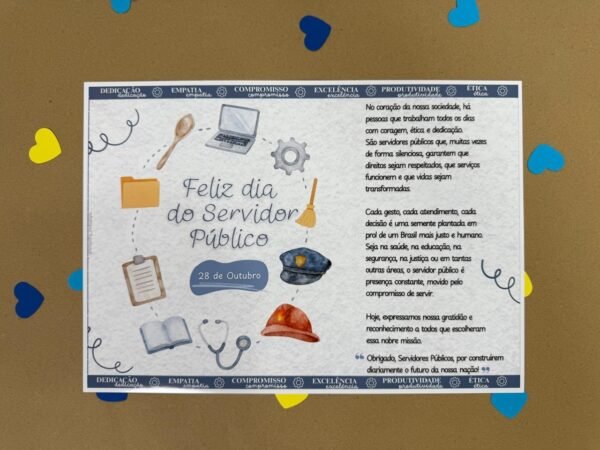 DEDICAÇÃO dedicação EMPATIA empatia COMPROMISSO compromisso EXCELÊNCIA excelência PRODUTIVIDADE produtividade ÉTICA ética
Feliz dia
do Servidor
Público
28 de Outubro
No coração da nossa sociedade, há
pessoas que trabalham todos os dias
com coragem, ética e dedicação.
São servidores públicos que, muitas vezes
de forma silenciosa, garantem que
direitos sejam respeitados, que serviços
funcionem e que vidas sejam
transformadas.
Cada gesto, cada atendimento, cada
decisão é uma semente plantada em
prol de um Brasil mais justo e humano.
Seja na saúde, na educação, na
segurança, na justiça ou em tantas
outras áreas, o servidor público é
presença constante, movido pelo
compromisso de servir.
Hoje, expressamos nossa gratidão e
reconhecimento a todos que escolheram
essa nobre missão.
“ Obrigado, Servidores Públicos, por construírem
diariamente o futuro da nossa nação! ”
DEDICAÇÃO dedicação EMPATIA empatia COMPROMISSO compromisso EXCELÊNCIA excelência PRODUTIVIDADE produtividade ÉTICA ética